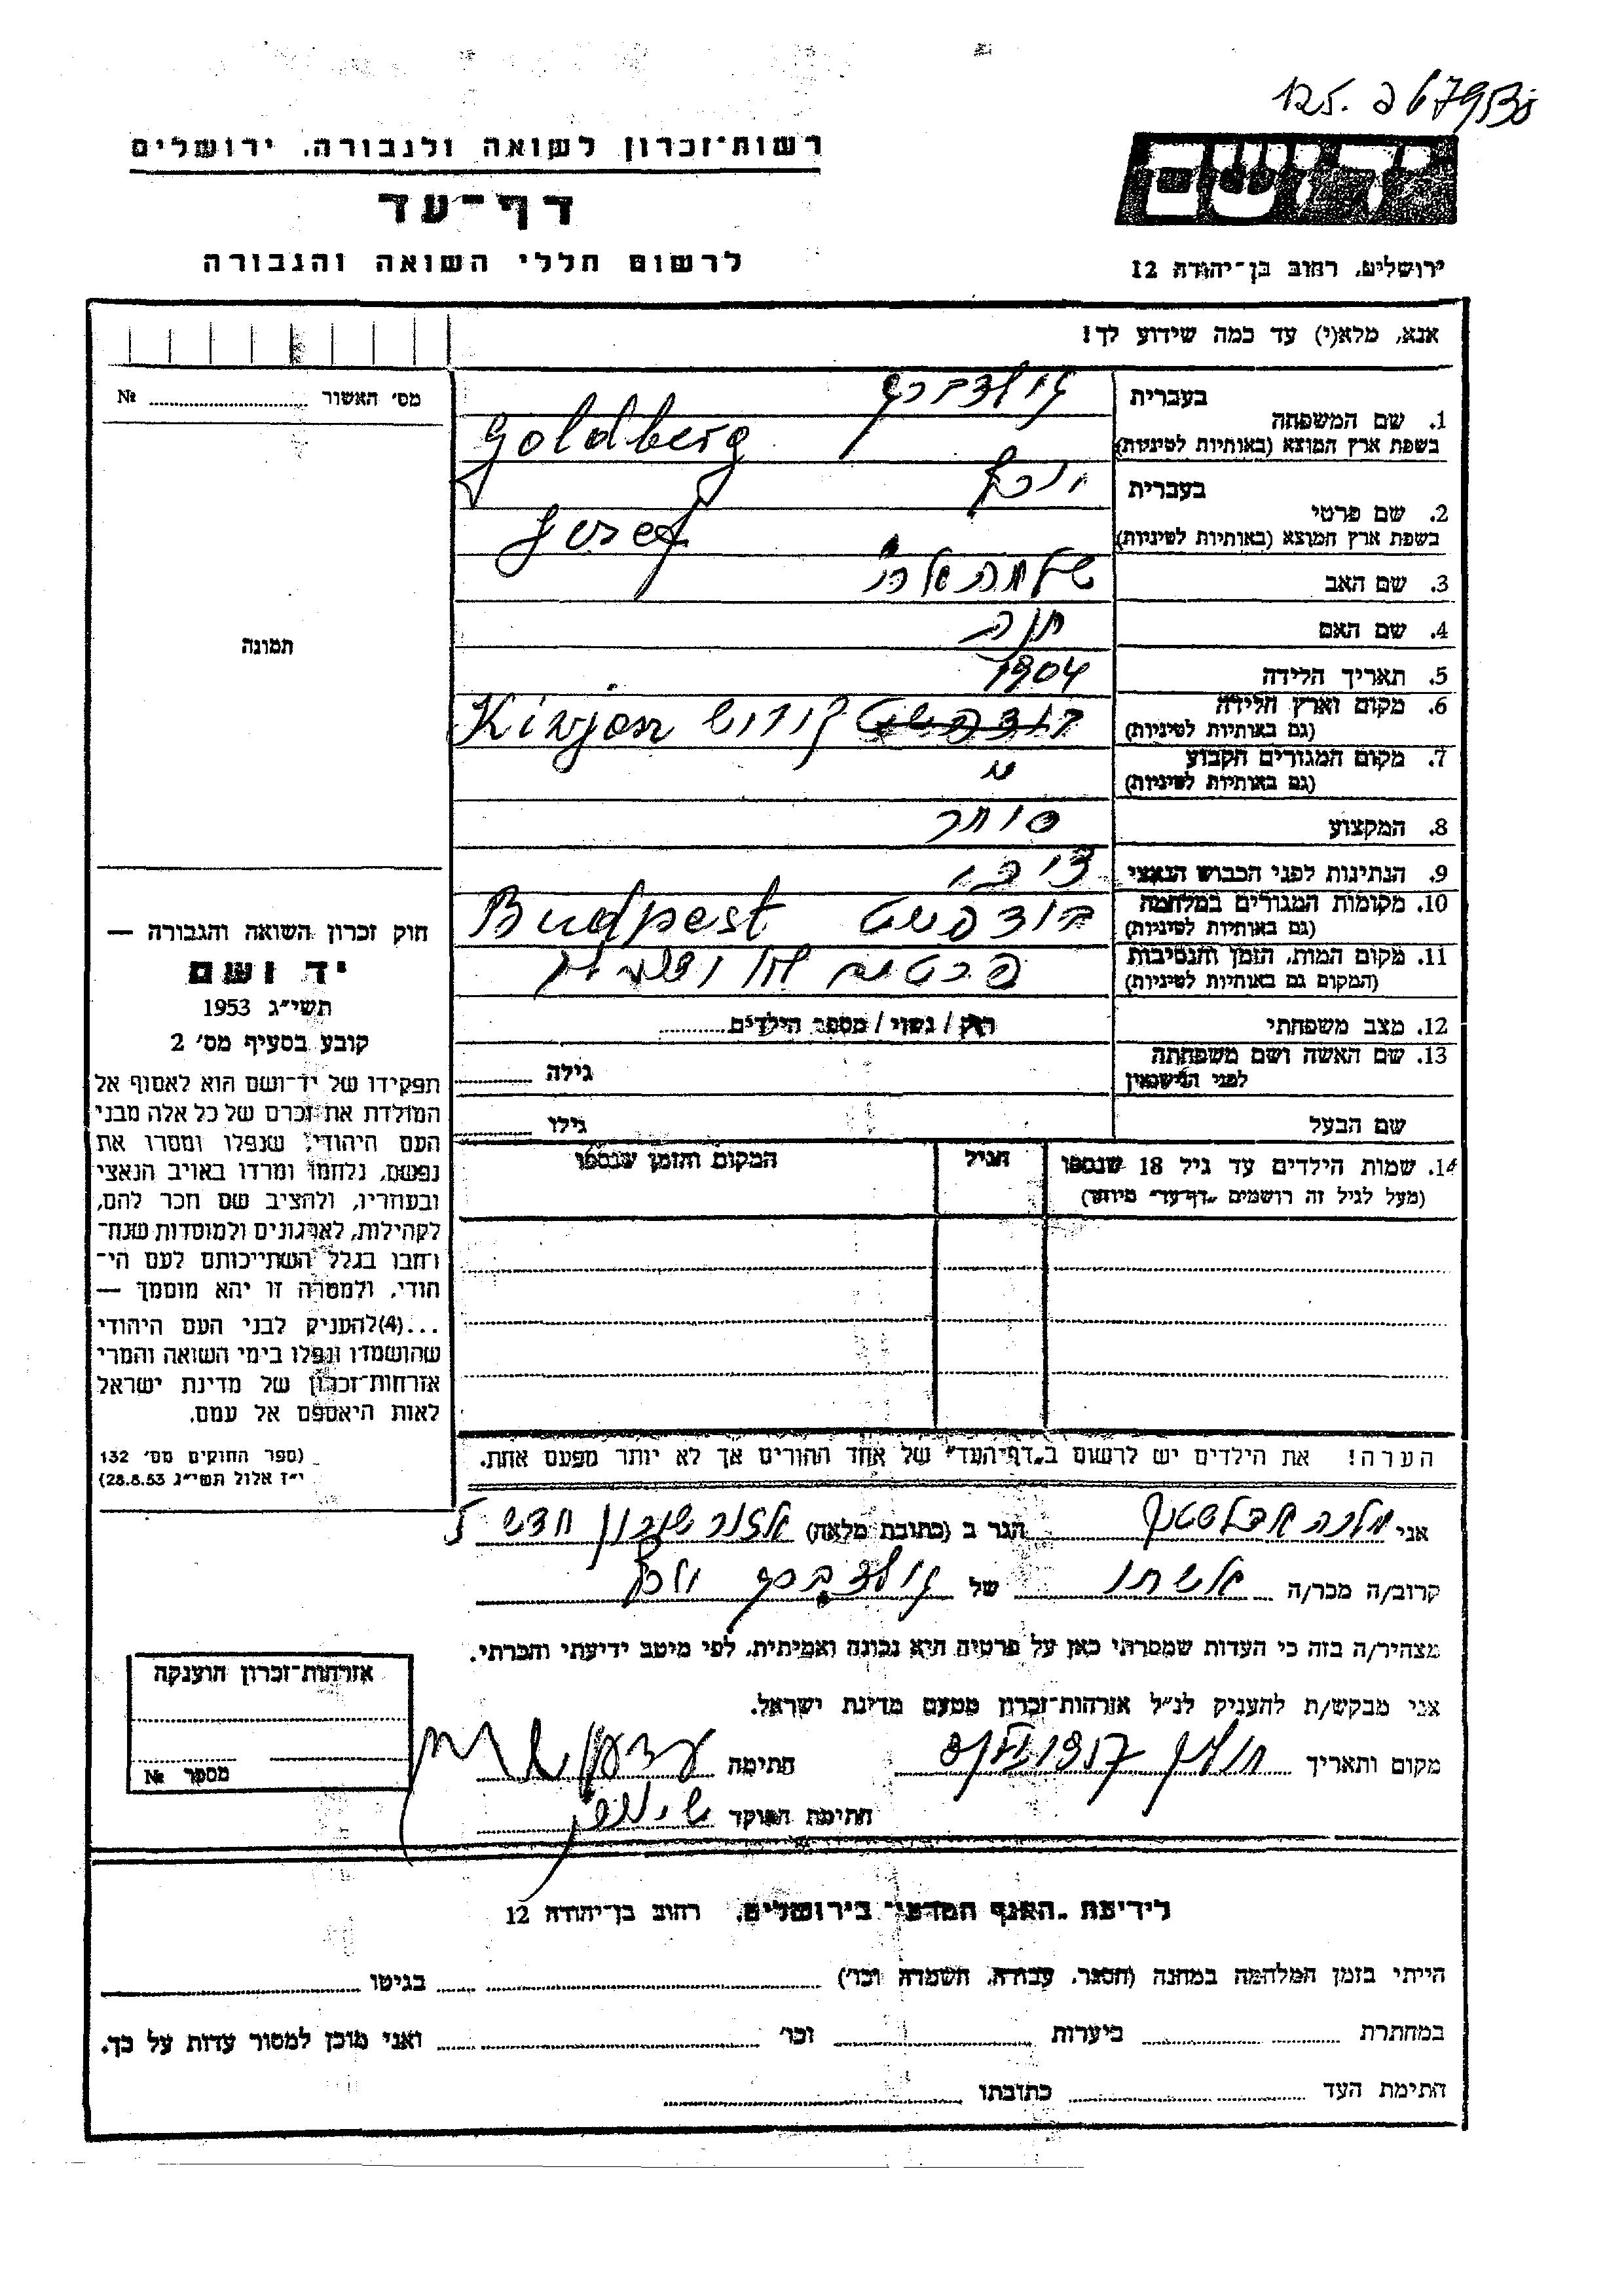 רשות־זכרון לשואה ולגבורה, ירושלים
דף־עד
לרשום חללי השואה והגבורה
יד ושם
ירושלים, רחוב בן־יהודה 12
אנא, מלא(י) עד כמה שידוע לך!
מס׳ האשור № 
תמונה
1. שם המשפחה
בעברית גולדברג
בשפת ארץ המוצא (באותיות לטיניות) Goldberg
2. שם פרטי
בעברית יוסף
בשפת ארץ המוצא (באותיות לטיניות) Josef
3. שם האב
4. שם האם חנה
5. תאריך הלידה 1904
6. מקום וארץ הלידה
(גם באותיות לטיניות) בודפשט
7. מקום המגורים הקבוע
(גם באותיות לטיניות) "
8. המקצוע סוחר
9. הנתינות לפני הכבוש הנאצי
10. מקומות המגורים במלחמה
(גם באותיות לטיניות) בודפשט Budpest
11. מקום המות, הזמן והנסיבות
(המקום גם באותיות לטיניות) פרטים לא
12. מצב משפחתי רווק / נשוי / מספר הילדים
13. שם האשה ושם משפחתה
לפני הנישואין גילה
שם הבעל גילו
14. שמות הילדים עד גיל 18 שנספו
(מעל לגיל זה רושמים „דף־עד״ מיוחד)
הגיל
המקום והזמן שנספו
הערה! את הילדים יש לרשום ב„דף־העד״ של אחד ההורים אך לא יותר מפעם אחת.
חוק זכרון השואה והגבורה —
יד ושם
תשי״ג 1953
קובע בסעיף מס׳ 2
תפקידו של יד־ושם הוא לאסוף אל
המולדת את זכרם של כל אלה מבני
העם היהודי, שנפלו ומסרו את
נפשם, נלחמו ומרדו באויב הנאצי
ובעוזריו, ולהציב שם וזכר להם,
לקהילות, לארגונים ולמוסדות שנח־
רחבו בגלל השתייכותם לעם הי־
הודי, ולמטרה זו יהא מוסמך —
...(4)להעניק לבני העם היהודי
שהושמדו ונפלו בימי השואה והמרי
אזרחות־זכרון של מדינת ישראל
לאות היאספם אל עמם.
(ספר החוקים מס׳ 132
י״ז אלול תשי״ג 28.8.53)
אני מלכה הגר ב (כתובת מלאה) חדש
קרוב/ה מכר/ה של גולדברג יוסף
מצהיר/ה בזה כי העדות שמסרתי כאן על פרטיה היא נכונה ואמיתית, לפי מיטב ידיעתי והכרתי.
אני מבקש/ת להעניק לנ״ל אזרחות־זכרון מטעם מדינת ישראל.
מקום ותאריך חולון חתימה
חתימת הפוקד
אזרחות־זכרון הוענקה
מספר №
לידיעת „האגף המדעי״ בירושלים, רחוב בן־יהודה 12
הייתי בזמן המלחמה במחנה (הסגר, עבודה, השמדה וכו׳) בגיטו
במחתרת ביערות וכו׳ ואני מוכן למסור עדות על כך.
חתימת העד כתובתו